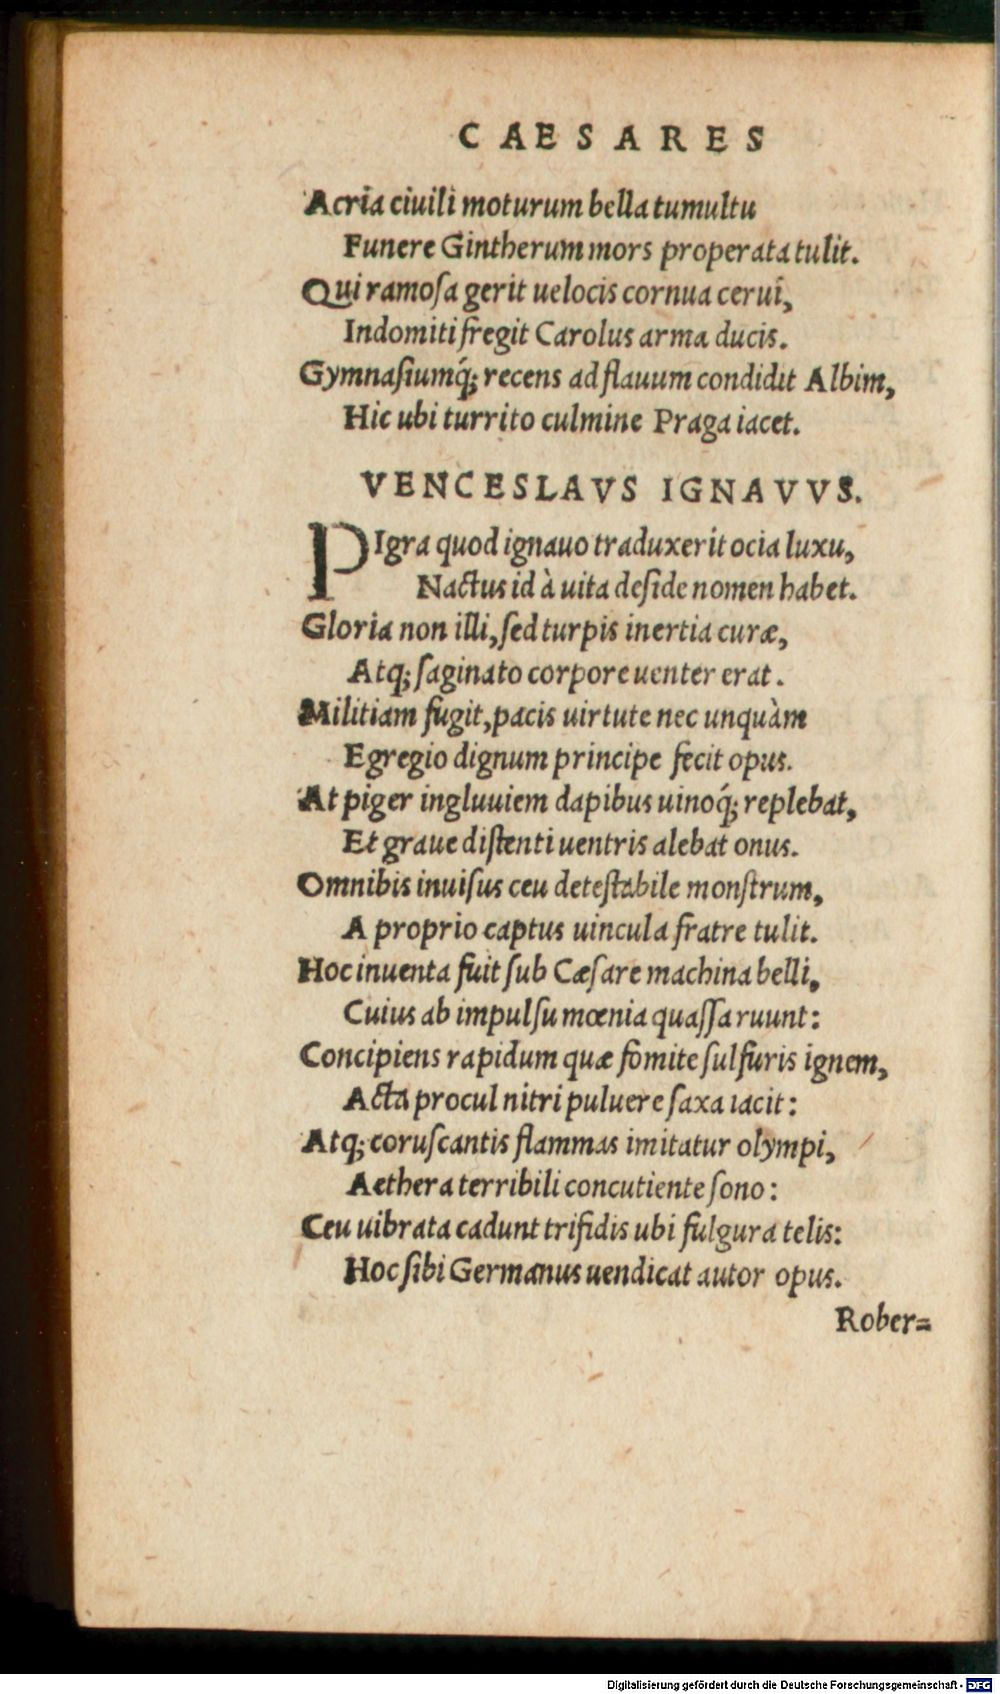 CAESARES
Acria ciuili moturum bella tumultu
Funere Gintherum mors properata tulit.
Qui ramoſa gerit uelocis cornua cerui,
Indomiti fregit Carolus arma ducis.
Gymnaſiumq́; recens ad flauum condidit Albim,
Hic ubi turrito culmine Praga iacet.
VENCESLAVS IGNAVVS.
PIgra quod ignauo traduxerit ocia luxu,
Nactus id à uita deſide nomen habet.
Gloria non illi, ſed turpis inertia curæ,
Atq; ſaginato corpore uenter erat.
Militiam fugit, pacis uirtute nec unquàm
Egregio dignum principe fecit opus.
At piger ingluuiem dapibus uinoq́; replebat,
Et graue diſtenti uentris alebat onus.
Omnibis inuiſus ceu deteſtabile monſtrum,
A proprio captus uincula fratre tulit.
Hoc inuenta fuit ſub Cæſare machina belli,
Cuius ab impulſu mœnia quaſſa ruunt:
Concipiens rapidum quæ fomite ſulfuris ignem,
Acta procul nitri puluere ſaxa iacit:
Atq; coruſcantis flammas imitatur olympi,
Aethera terribili concutiente ſono:
Ceu uibrata cadunt trifidis ubi fulgura telis:
Hoc ſibi Germanus uendicat autor opus.
Rober=
Digitalisierung gefördert durch die Deutsche Forschungsgemeinschaft - DFG